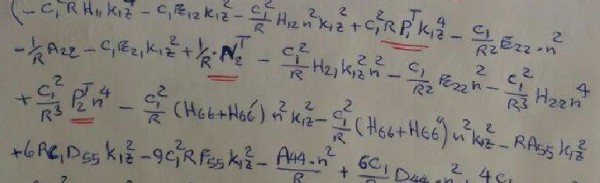 (- C₁²RH₁₁k₁z⁴ - C₁E₁₂k₁z² - C₁²/R H₁₂n²k₁z² + C₁²RP₁ᵀk₁z⁴ - C₁/R² E₂₂·n²
- 1/R A₂₂ - C₁E₂₁k₁z² + 1/R·N₂ᵀ - C₁²/R H₂₁k₁z²n² - C₁/R² E₂₂n² - C₁²/R³ H₂₂n⁴
+ C₁²/R³ P₂ᵀn⁴ - C₁²/R (H₆₆+H₆₆′)n²k₁z² - C₁²/R (H₆₆+H₆₆″)n²k₁z² - RA₅₅k₁z²
+6RC₁D₅₅k₁z² - 9C₁²RF₅₅k₁z² - A₄₄·n²/R + 6C₁ D₄₄